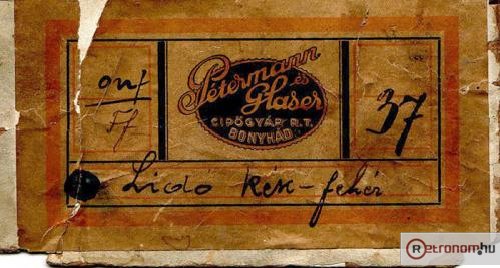 Pétermann
és
Glaser
CIPŐGYÁR R.T.
BONYHÁD
37
Lido kék-fehér
Retronom.hu